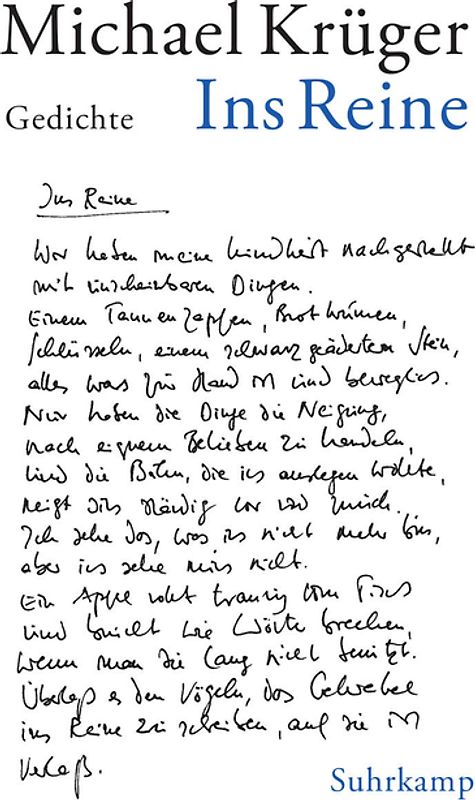 Michael Krüger
Gedichte Ins Reine
Ins Reine
Wir haben meine Kindheit nachgestellt
mit unscheinbaren Dingen.
Einem Tannenzapfen, Brotkrumen,
Schlüsseln, einem schwarz geäderten Stein,
alles was zur Hand ist und beweglich.
Nur haben die Dinge die Neigung,
nach eignem Belieben zu handeln,
und die Bahn, die ich auslegen wollte,
neigt sich ständig vor und zurück.
Ich sehe das, was ich nicht mehr bin,
aber ich sehe mich nicht.
Ein Apfel rollt traurig vom Tisch
und bricht wie Wörter brechen,
wenn man sie lang nicht benützt.
Überlaß es den Vögeln, das Gekrakel
ins Reine zu schreiben, auf sie ist
Verlaß.
Suhrkamp